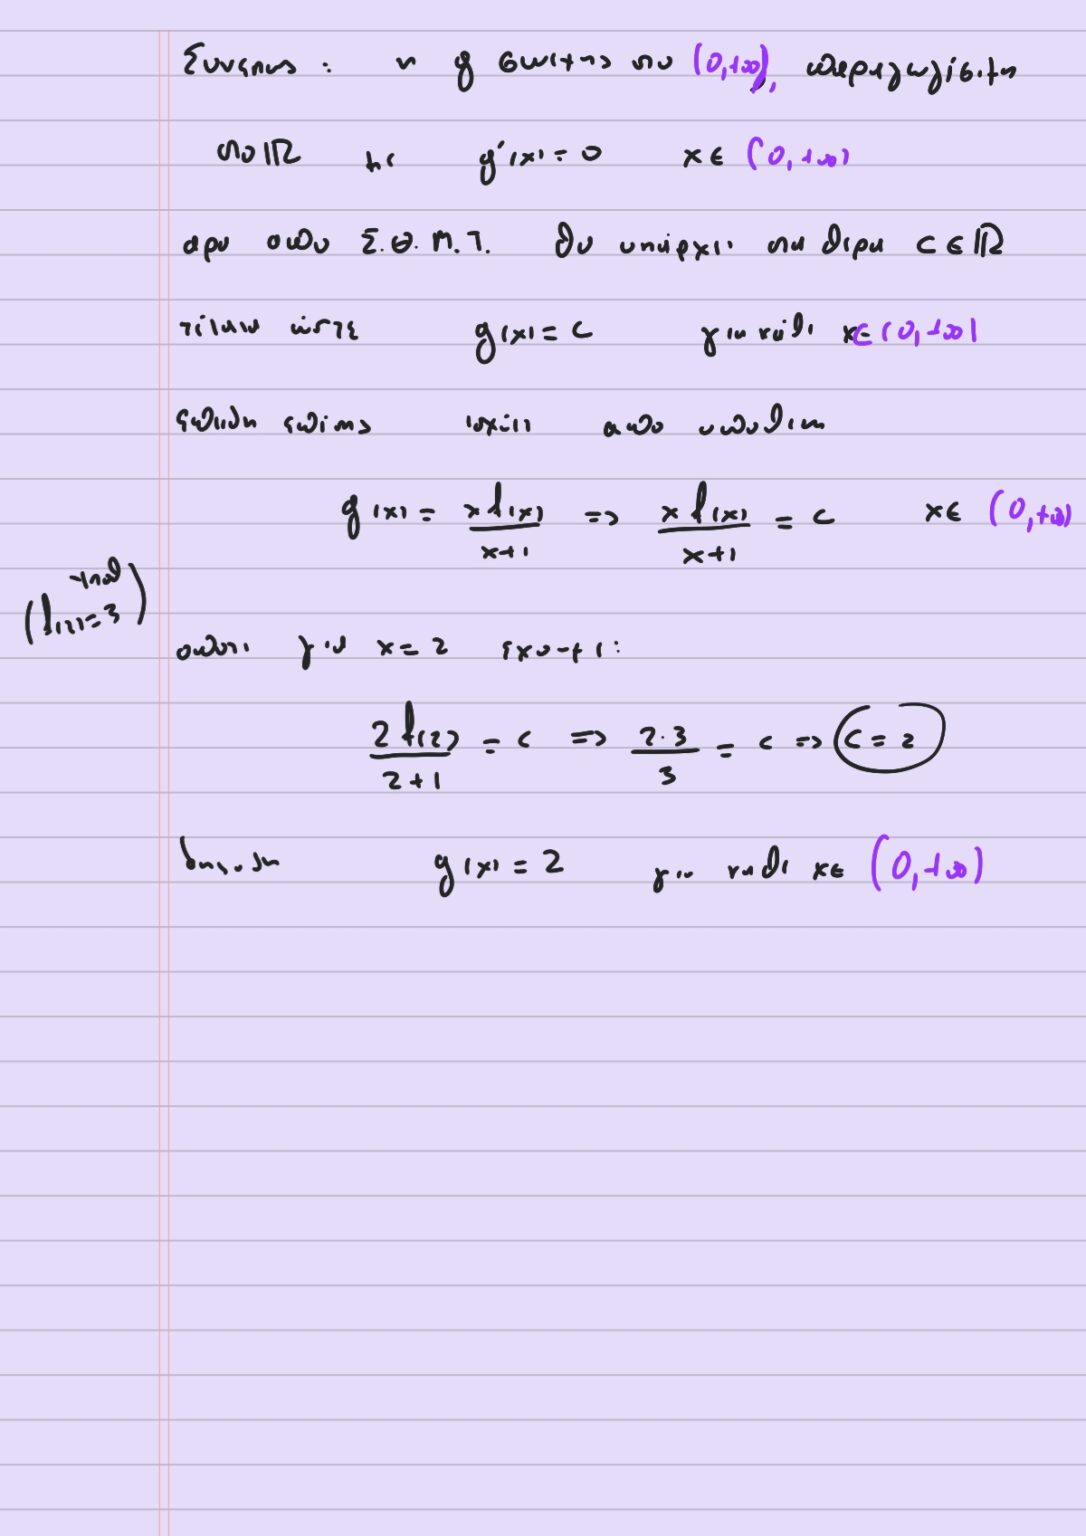 Συνεπως : η g συνεχης στο (0,+∞), παραγωγίσιμη
στο ℝ με g'(x) = 0 x ∈ (0,+∞)
αρα απο Σ.Θ.Μ.Τ. θα υπάρχει σταθερα c ∈ ℝ
τέτοια ώστε g(x) = c για κάθε x ∈ (0,+∞)
επειδη επίσης ισχύει απο υποθεση
g(x) = x f(x) / x+1 => x f(x) / x+1 = c x ∈ (0,+∞)
(f(2)=3)
οποτε για x = 2 εχουμε:
2 f(2) / 2+1 = c => 2·3 / 3 = c => c = 2
δηλαδη g(x) = 2 για καθε x ∈ (0,+∞)